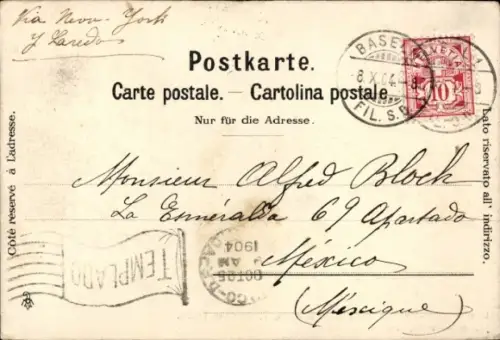 Via New-York
y Laredo
Postkarte.
Carte postale. — Cartolina postale.
Nur für die Adresse.
Côté reservé à l'adresse.
Lato riservato all' indirizzo.
BASEL
8.X.04
FIL. S.B.
HELVETIA
10
Monsieur Alfred Block
La Esméralda 69 Apartado
México
(Méxique)
TEMPLADO
OCT 25
AM
1904